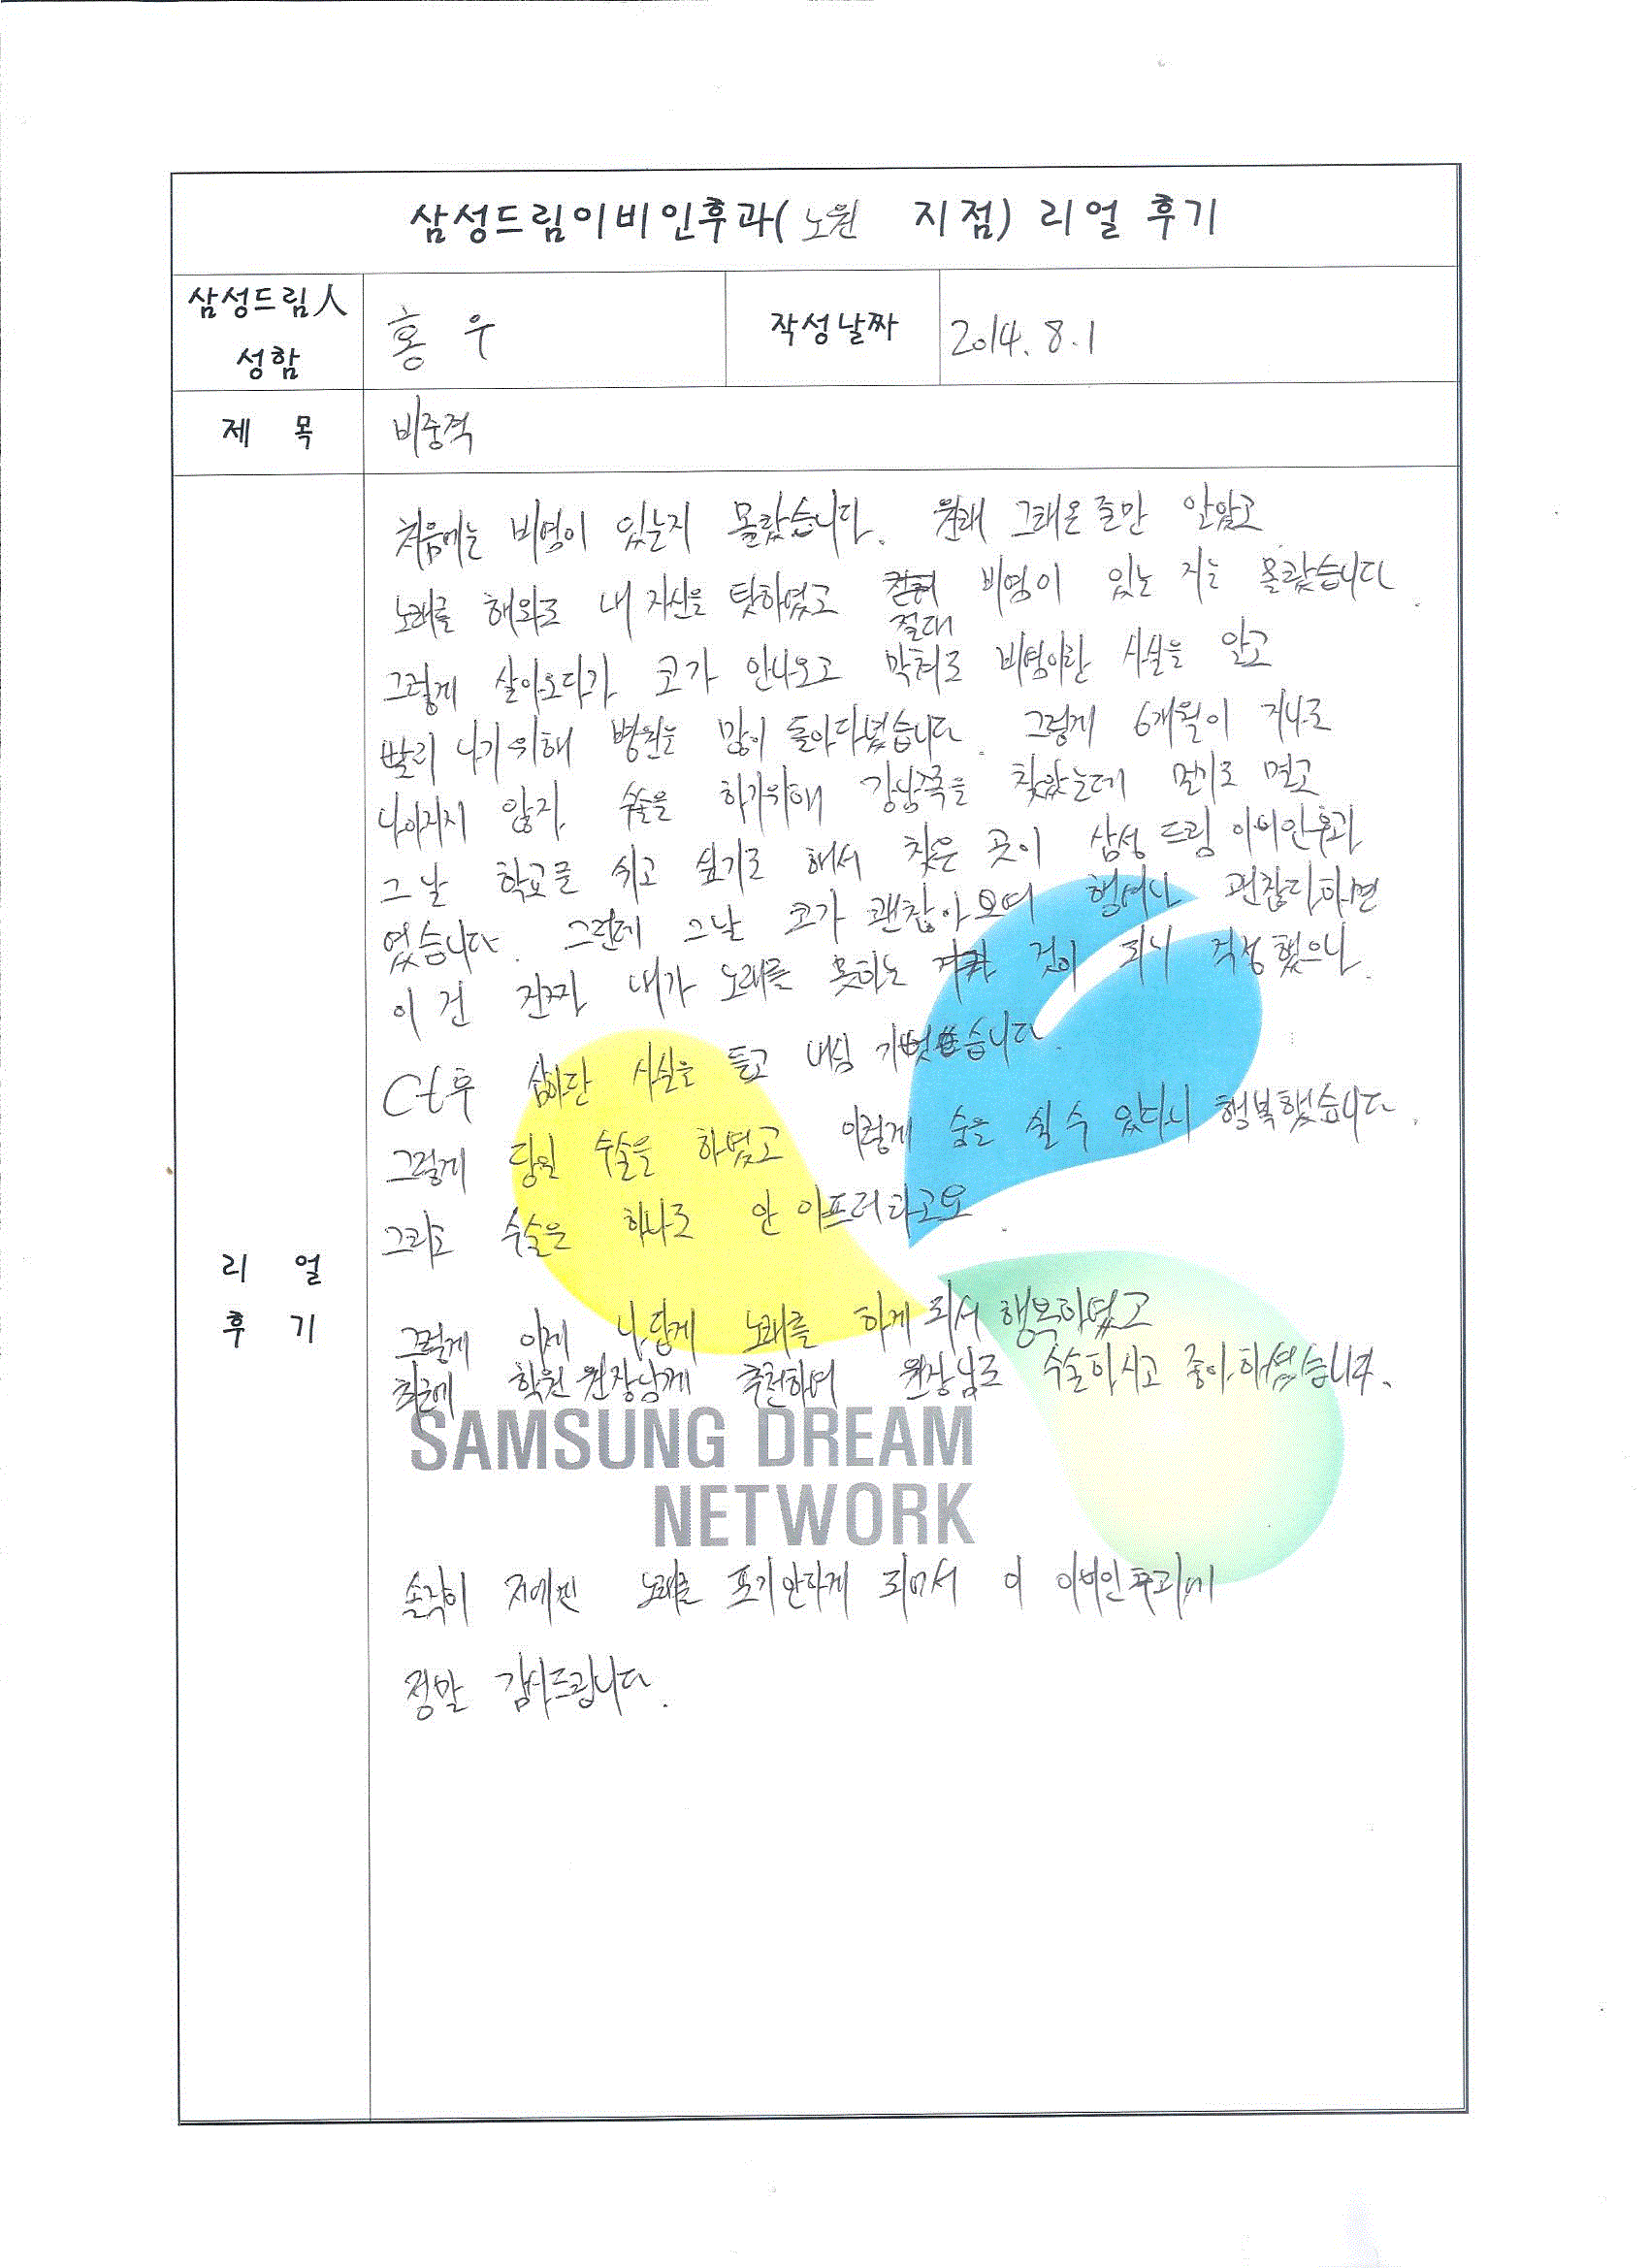 삼성드림이비인후과( 노원 지점) 리얼 후기
삼성드림人
성함
홍 우
작성날짜
2014. 8. 1
제 목
비중격
처음에는 비염이 있는지 몰랐습니다. 원래 그래온 줄만 알았고
노래를 해와도 내 자신을 탓하였고 절대 비염이 있는 지는 몰랐습니다.
그렇게 살아오다가 코가 안나오고 막혀도 비염이란 사실을 알고
빨리 낫기위해 병원을 많이 돌아다녔습니다. 그렇게 6개월이 지나도
나아지지 않자 수술을 하기위해 강남쪽을 찾았는데 멀기도 멀고
그 날 학교를 쉬고 싶기도 해서 찾은 곳이 삼성 드림 이비인후과
였습니다. 그런데 그날 코가 괜찮아 오며 행여나 괜찮다하면
이 건 진짜 내가 노래를 못하는 것이 되니 걱정했으나
Ct후 심하단 사실을 듣고 내심 기뻤습니다.
그렇게 당일 수술을 하였고 이렇게 숨을 쉴 수 있다니 행복했습니다.
그리고 수술은 하나도 안 아프더라고요.
그렇게 이제 나답게 노래를 하게 되서 행복하였고
최근에 학원 원장님께 추천하여 원장님도 수술하시고 좋아하셨습니다.
SAMSUNG DREAM
NETWORK
솔직히 저에겐 노래를 포기안하게 되어서 이 이비인후과에
정말 감사드립니다.
리 얼
후 기